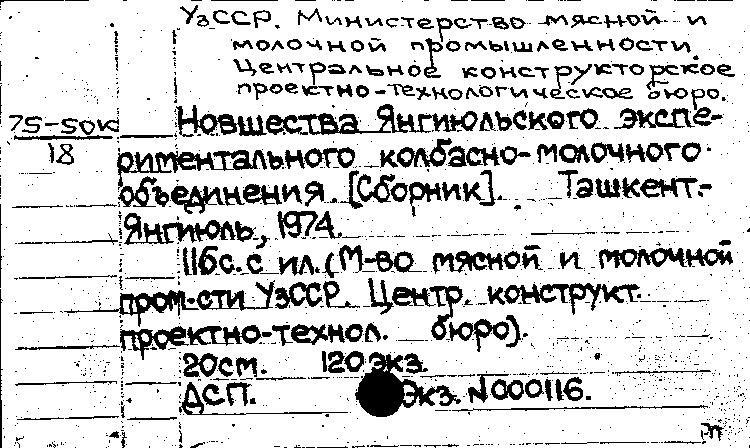 УзССР. Министерство мясной и
молочной промышленности.
Центральное конструкторское
проектно-технологическое бюро.
75-50к
18
Новшества Янгиюльского экспе-
риментального колбасно-молочного
объединения. [Сборник]. Ташкент.-
Янгиюль, 1974.
116с. с ил. (М-во мясной и молочной
пром-сти УзССР. Центр. конструкт.
проектно-технол. бюро).
20см. 120 экз.
ДСП. Экз. N000116.